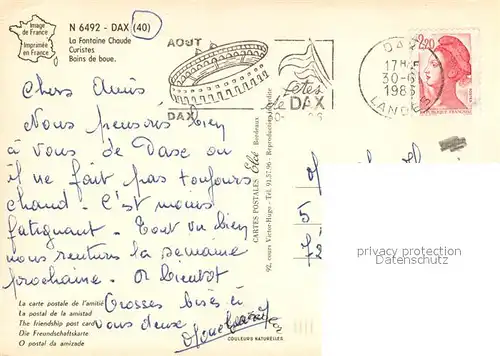 Image
de France
Imprimée
en France
N 6492 - DAX (40)
La Fontaine Chaude
Curistes
Bains de boue.
AOUT
DAX
fêtes
de DAX
DAX
17H
30-6
1986
LANDES
2,20
REPUBLIQUE FRANÇAISE
Chers Amis
Nous pensons bien
à vous de Dax ou
il ne fait pas toujours
chaud. C'est moins
fatiguant. Tout va bien
nous rentrons la semaine
prochaine. A bientôt
Grosses bises à
vous deux
CARTES POSTALES Elcé Bordeaux
92, cours Victor-Hugo - Tél. 91.57.96 - Reproduction interdite
5
privacy protection
veiling
La carte postale de l'amitié
La postal de la amistad
The friendship post card
Die Freundschaftskarte
O postal da amizade
COULEURS NATURELLES